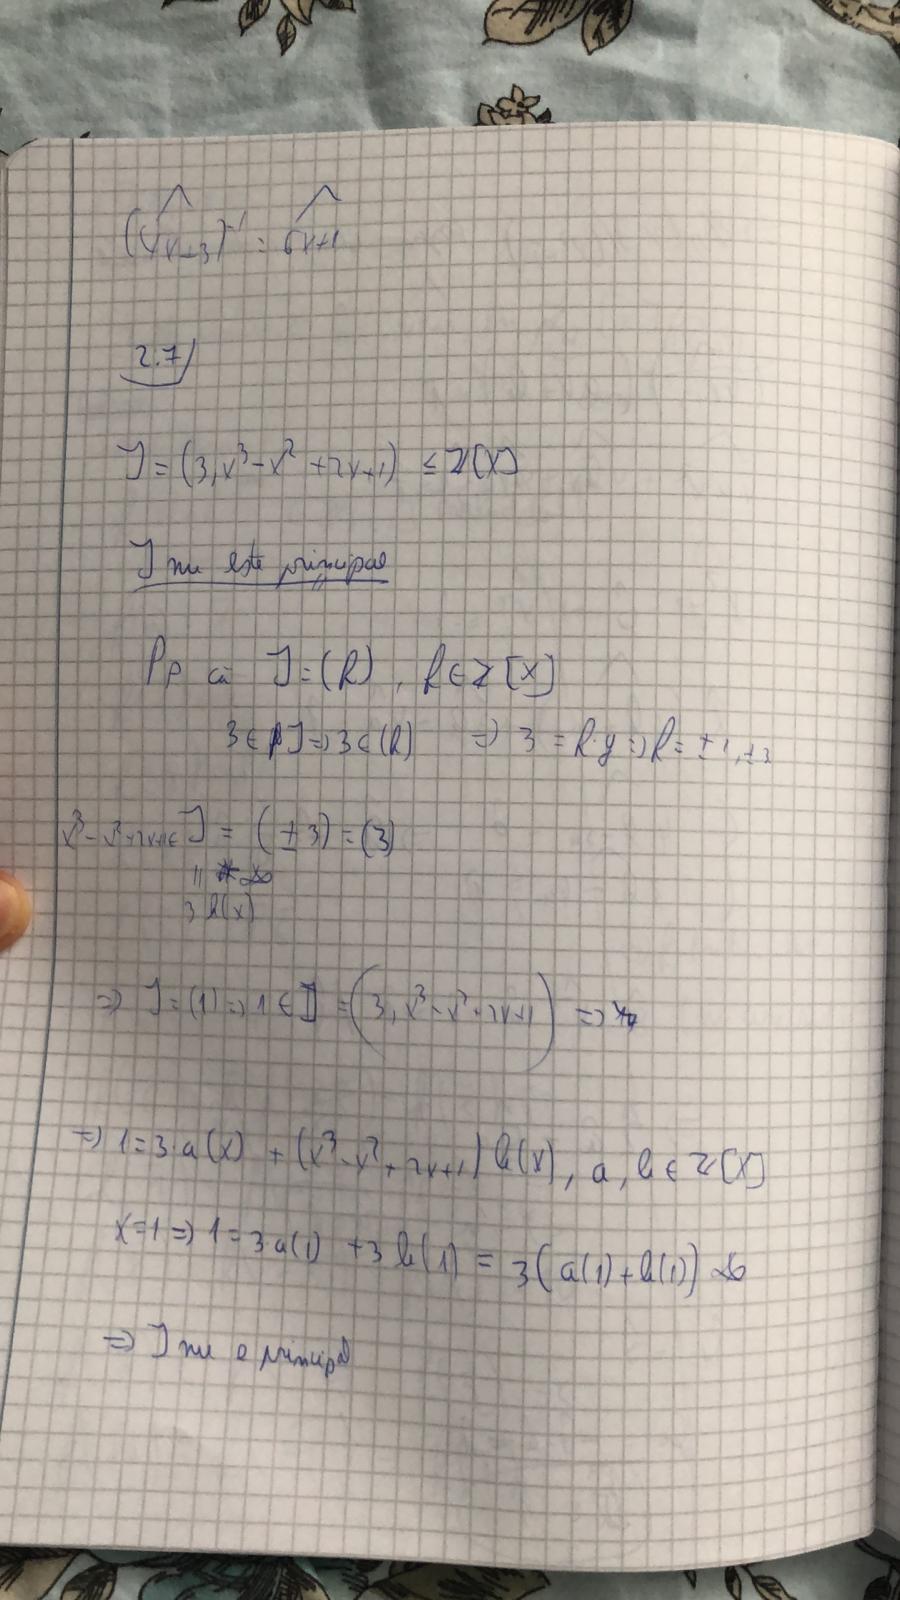 (4x+3)^-1 = 6x+1
2.7)
I = (3, x³ - x² + 2x+1) ≤ Z[X]
I nu este principal
Pp că I = (f), f ∈ Z[X]
3 ∈ I => 3 ∈ (f) => 3 = f·g => f = ±1, ±3
x³ - x² + 2x+1 ∈ I = (±3) = (3)
3 h(x)
=> I = (1) => 1 ∈ I = (3, x³ - x² + 2x+1) =>
=> 1 = 3·a(x) + (x³ - x² + 2x+1) b(x), a, b ∈ Z[X]
x=1 => 1 = 3a(1) + 3b(1) = 3(a(1) + b(1))
=> I nu e principal